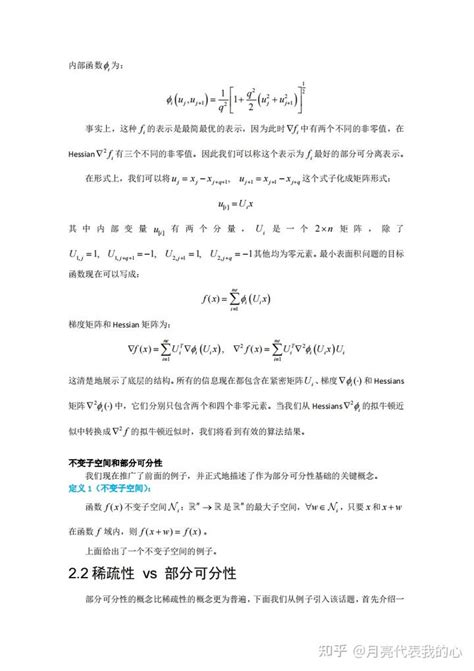 内部函数 ϕᵢ 为：
ϕᵢ(uⱼ, uⱼ₊₁) = 1/q² [1 + q²/2 (uⱼ² + uⱼ₊₁²)]^(1/2)
事实上，这种 fᵢ 的表示是最简最优的表示，因为此时 ∇fᵢ 中有两个不同的非零值，在
Hessian ∇²fᵢ 有三个不同的非零值。因此我们可以称这个表示为 fᵢ 最好的部分可分离表示。
在形式上，我们可以将 uⱼ = xⱼ − xⱼ₊q₊₁, uⱼ₊₁ = xⱼ₊₁ − xⱼ₊q 这个式子化成矩阵形式：
u[i] = Uᵢx
其中内部变量 u[i] 有两个分量，Uᵢ 是一个 2×n 矩阵，除了
U₁,ⱼ = 1, U₁,ⱼ₊q₊₁ = −1, U₂,ⱼ₊₁ = 1, U₂,ⱼ₊q = −1 其他均为零元素。最小表面积问题的目标
函数现在可以写成：
f(x) = ∑ᵢ₌₁ⁿᵉ ϕᵢ(Uᵢx)
梯度矩阵和 Hessian 矩阵为：
∇f(x) = ∑ᵢ₌₁ⁿᵉ Uᵢᵀ∇ϕᵢ(Uᵢx), ∇²f(x) = ∑ᵢ₌₁ⁿᵉ Uᵢᵀ∇²ϕᵢ(Uᵢx)Uᵢ
这清楚地展示了底层的结构。所有的信息现在都包含在紧密矩阵 Uᵢ、梯度 ∇ϕᵢ(·) 和 Hessians
矩阵 ∇²ϕᵢ(·) 中，它们分别只包含两个和四个非零元素。当我们从 Hessians ∇²ϕᵢ 的拟牛顿近
似中转换成 ∇²f 的拟牛顿近似时，我们将看到有效的算法结果。
不变子空间和部分可分性
我们现在推广了前面的例子，并正式地描述了作为部分可分性基础的关键概念。
定义 1（不变子空间）：
函数 f(x) 不变子空间 𝒩ᵢ：ℝⁿ → ℝ 是 ℝⁿ 的最大子空间，∀w ∈ 𝒩ᵢ，只要 x 和 x + w
在函数 f 域内，则 f(x + w) = f(x)。
上面给出了一个不变子空间的例子。
2.2 稀疏性 vs 部分可分性
部分可分性的概念比稀疏性的概念更为普遍，下面我们从例子引入该话题，首先介绍一
知乎 @月亮代表我的心